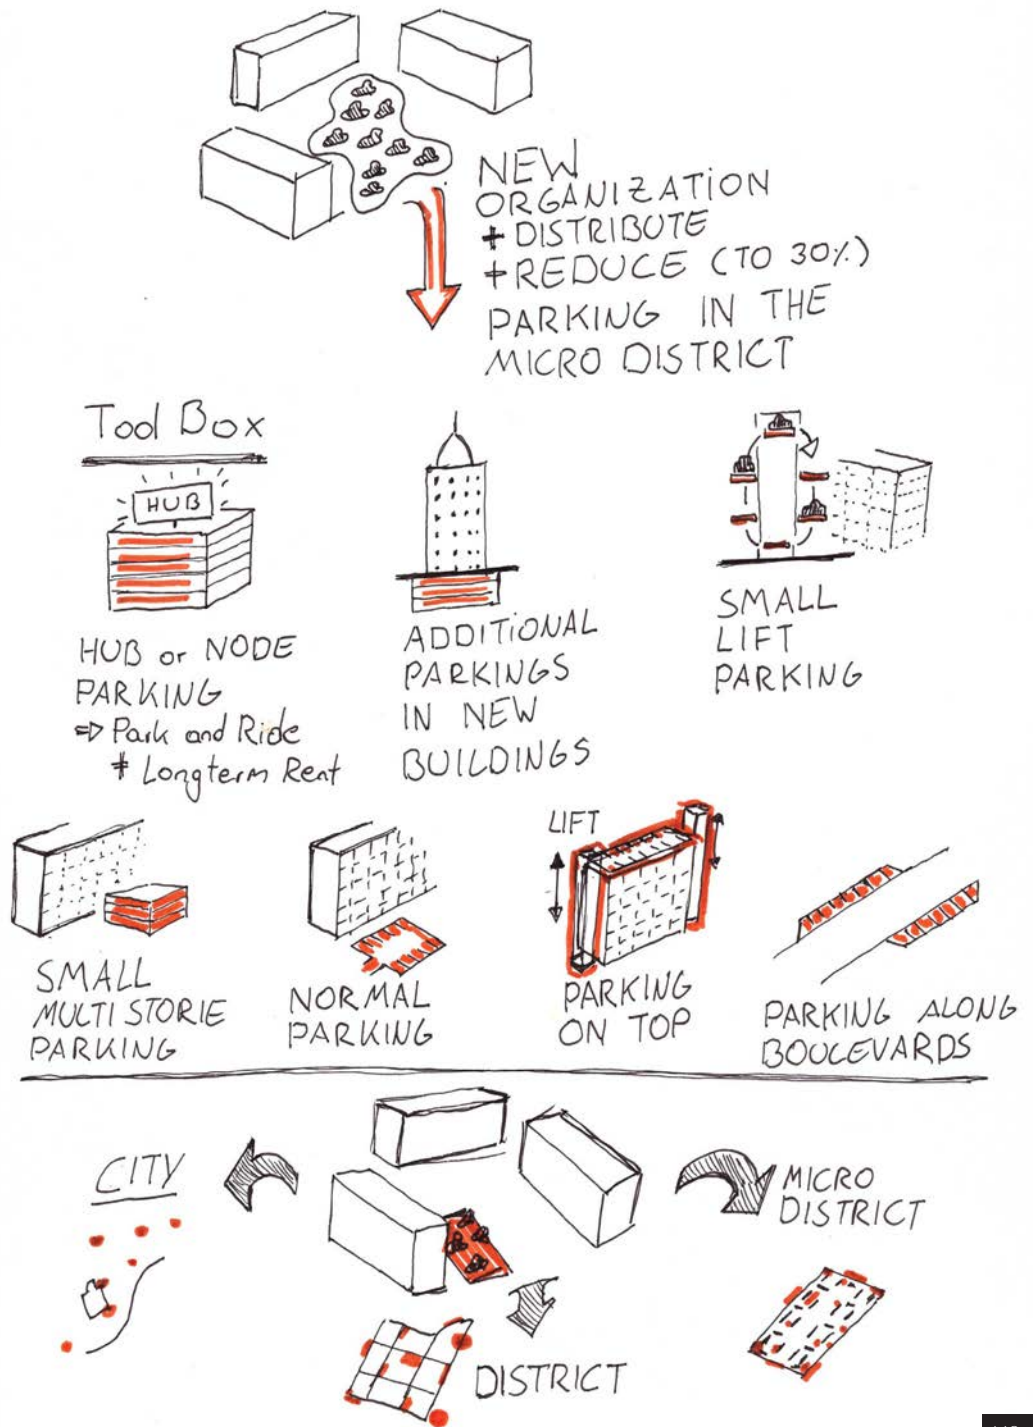 NEW
ORGANIZATION
+ DISTRIBUTE
+ REDUCE (TO 30%)
PARKING IN THE
MICRO DISTRICT
Tool Box
HUB
HUB or NODE
PARKING
⇒ Park and Ride
+ Longterm Rent
ADDITIONAL
PARKINGS
IN NEW
BUILDINGS
SMALL
LIFT
PARKING
SMALL
MULTI STORIE
PARKING
NORMAL
PARKING
LIFT
PARKING
ON TOP
PARKING ALONG
BOULEVARDS
CITY
MICRO
DISTRICT
DISTRICT